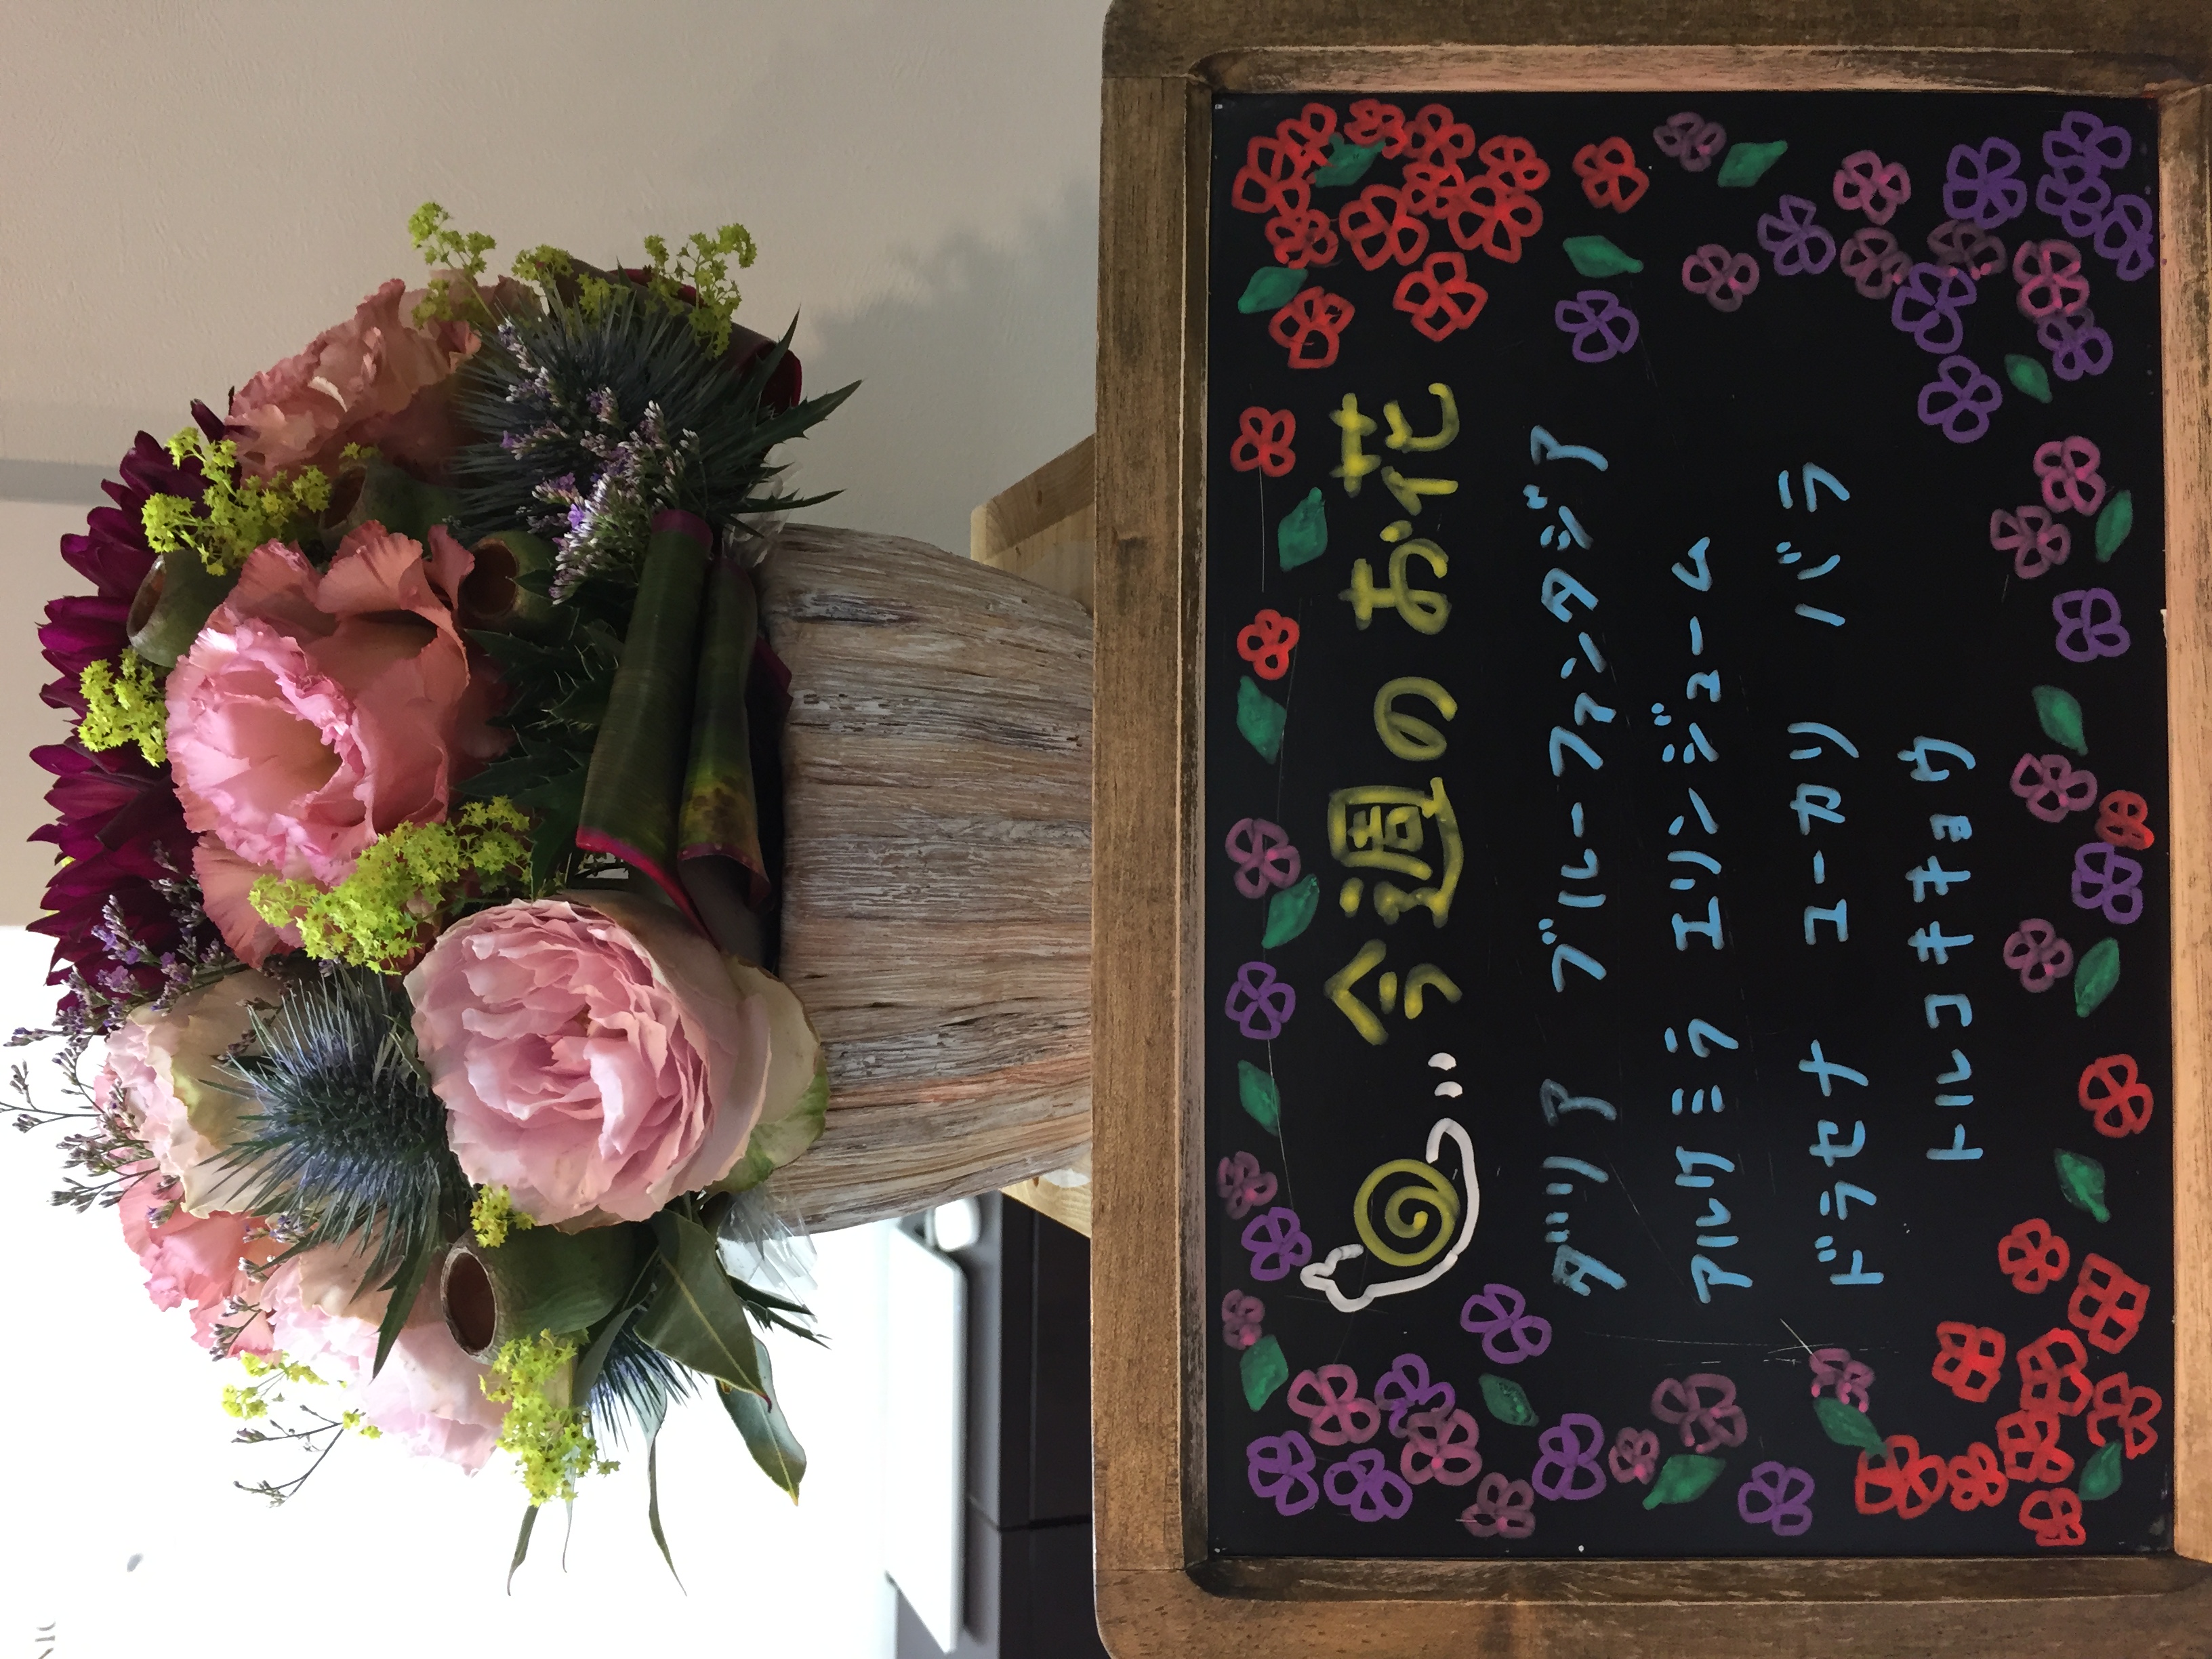 今週のお花
ダリア ブルーファンタジア
アルケミラ エリンジューム
ドラセナ ユーカリ バラ
トルコキキョウ